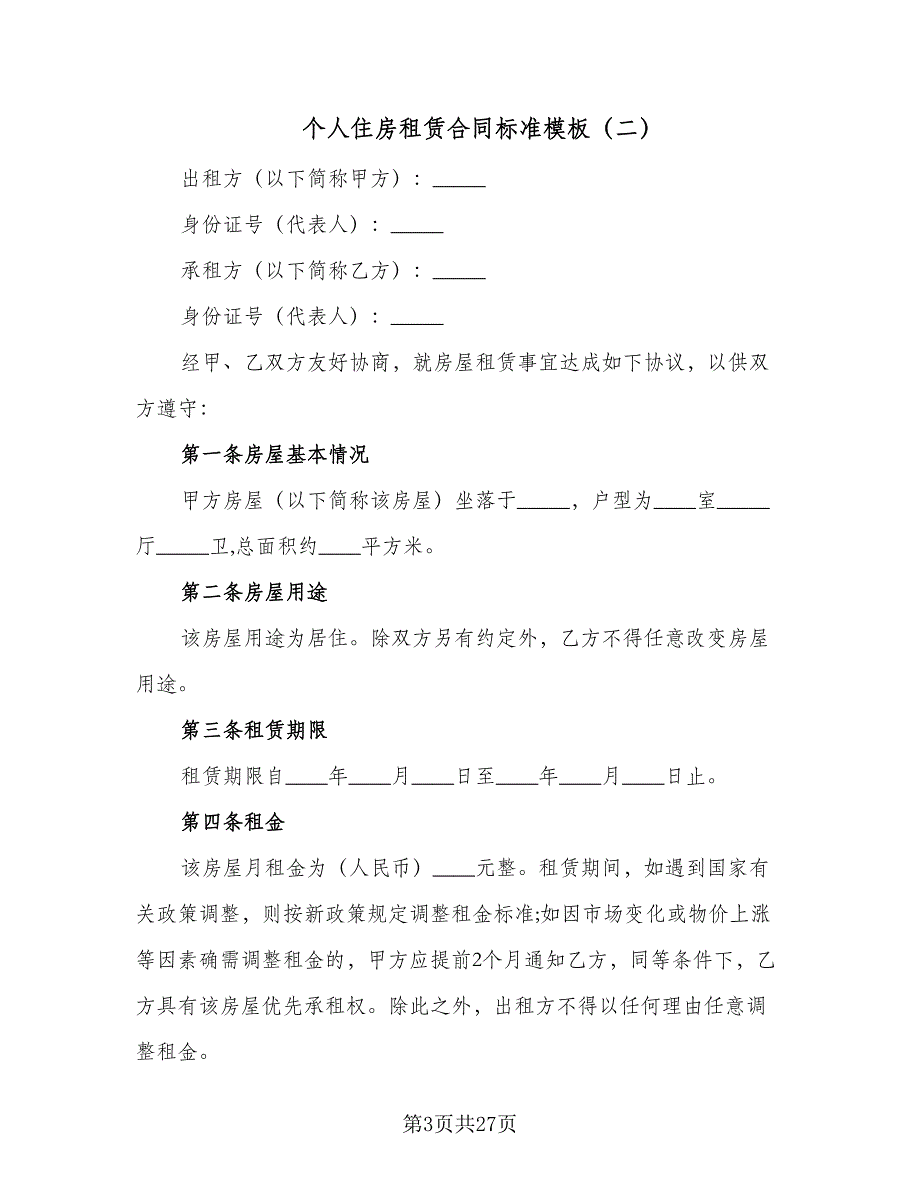 个人住房租赁合同标准模板（二）
出租方（以下简称甲方）：_____
身份证号（代表人）：_____
承租方（以下简称乙方）：_____
身份证号（代表人）：_____
经甲、乙双方友好协商，就房屋租赁事宜达成如下协议，以供双
方遵守：
第一条房屋基本情况
甲方房屋（以下简称该房屋）坐落于_____，户型为____室_____
厅_____卫,总面积约____平方米。
第二条房屋用途
该房屋用途为居住。除双方另有约定外，乙方不得任意改变房屋
用途。
第三条租赁期限
租赁期限自____年____月____日至____年____月____日止。
第四条租金
该房屋月租金为（人民币）____元整。租赁期间，如遇到国家有
关政策调整，则按新政策规定调整租金标准;如因市场变化或物价上涨
等因素确需调整租金的，甲方应提前2个月通知乙方，同等条件下，乙
方具有该房屋优先承租权。除此之外，出租方不得以任何理由任意调
整租金。
第3页共27页